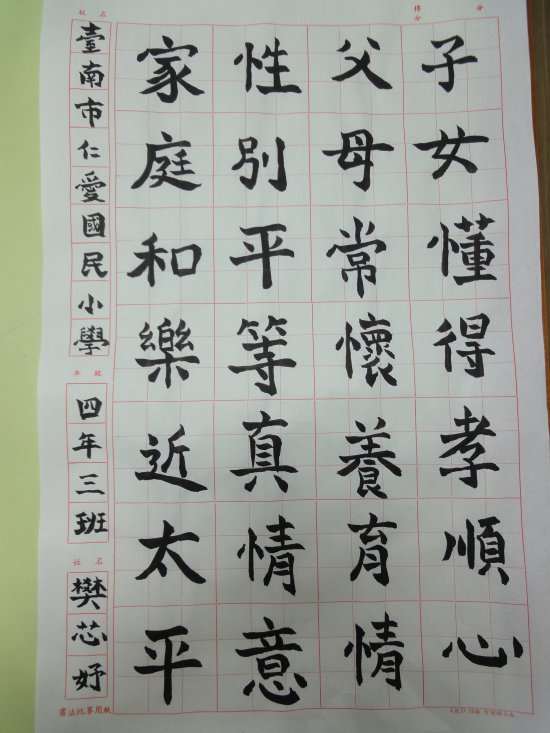 子女懂得孝順心
父母常懷養育情
性別平等真情意
家庭和樂近太平
臺南市仁愛國民小學
年級
四年三班
姓名
樊芯妤
書法比賽用紙